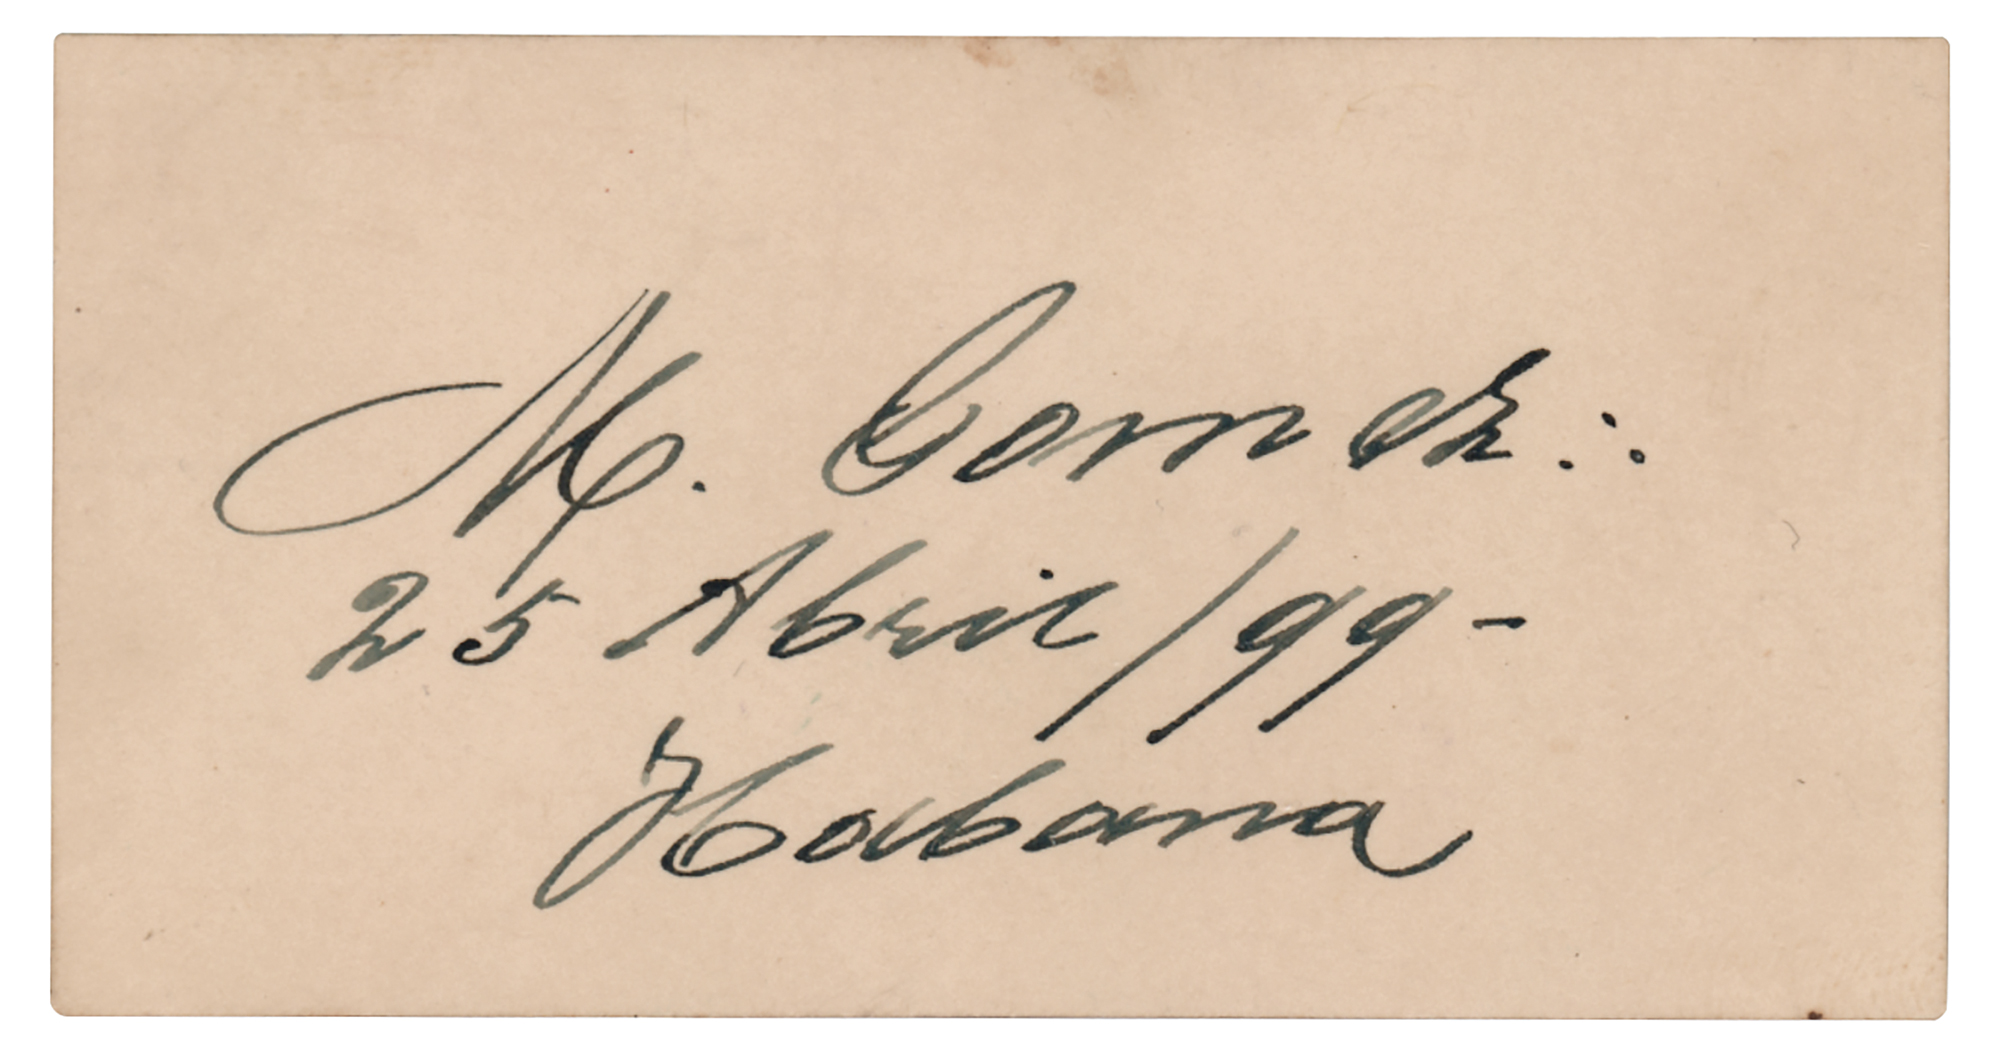 M. Gomez ∴
25 Abril/99-
Habana